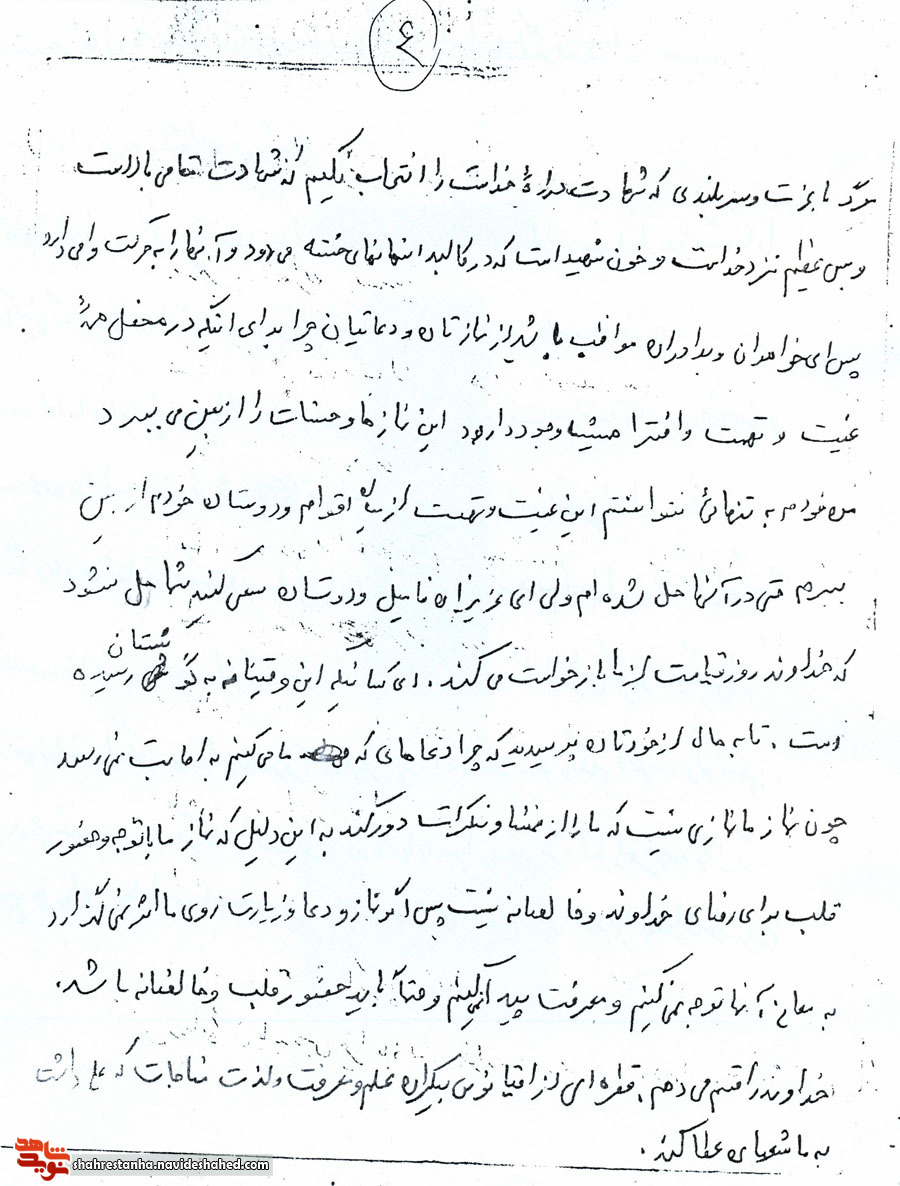 ۶
مرگ با عزت و سربلندی که شهادت در راه خداست را انتخاب بکنیم که شهادت مقامی بالاست
و بس عظیم نزد خداست و خون شهید است که در کالبد انسانهای خسته می رود و آنها را به حرکت وا می دارد
پس ای خواهران و برادران مواظب باشید از نمازتان و دعاتیان چرا برای اینکه در محفل همۀ
غیبت و تهمت و افترا همیشه وجود دارد این نمازها و حسنات را از بین می برد
من خودم به تنهائی نتوانستم این غیبت و تهمت از میان اقوام و دوستان خودم از بین
ببرم حتی در آنها حل شده ام ولی ای عزیزان فامیل و دوستان سعی کنید شما حل نشود
که خداوند روز قیامت از ما بازخواست می کند. ای کسانیکه این وصیتنامه به گوشتان رسیده
است. تا به حال از خودتان پرسیدید که چرا دعاهای که ما می کنیم به اجابت نمی رسد
چون نماز ما نمازی نیست که ما را از فحشا و منکرات دور کند به این دلیل که نماز ما با توجه و حضور
قلب برای رضای خداوند و خالصانه نیست پس اگر نماز و دعا و زیارت روی ما اثر نمی گذارد
به معانی آنها توجه نمی کنیم و معرفت پیدا نمی کنیم و حتماً باید حضور قلب و خالصانه باشد.
خداوند را قسم می دهم، قطره ای از اقیانوس بیکران علم و معرفت و لذت مناجات که علی داشت
به ما شیعیان عطا کند.
نوید شاهد
shahrestanha.navideshahed.com